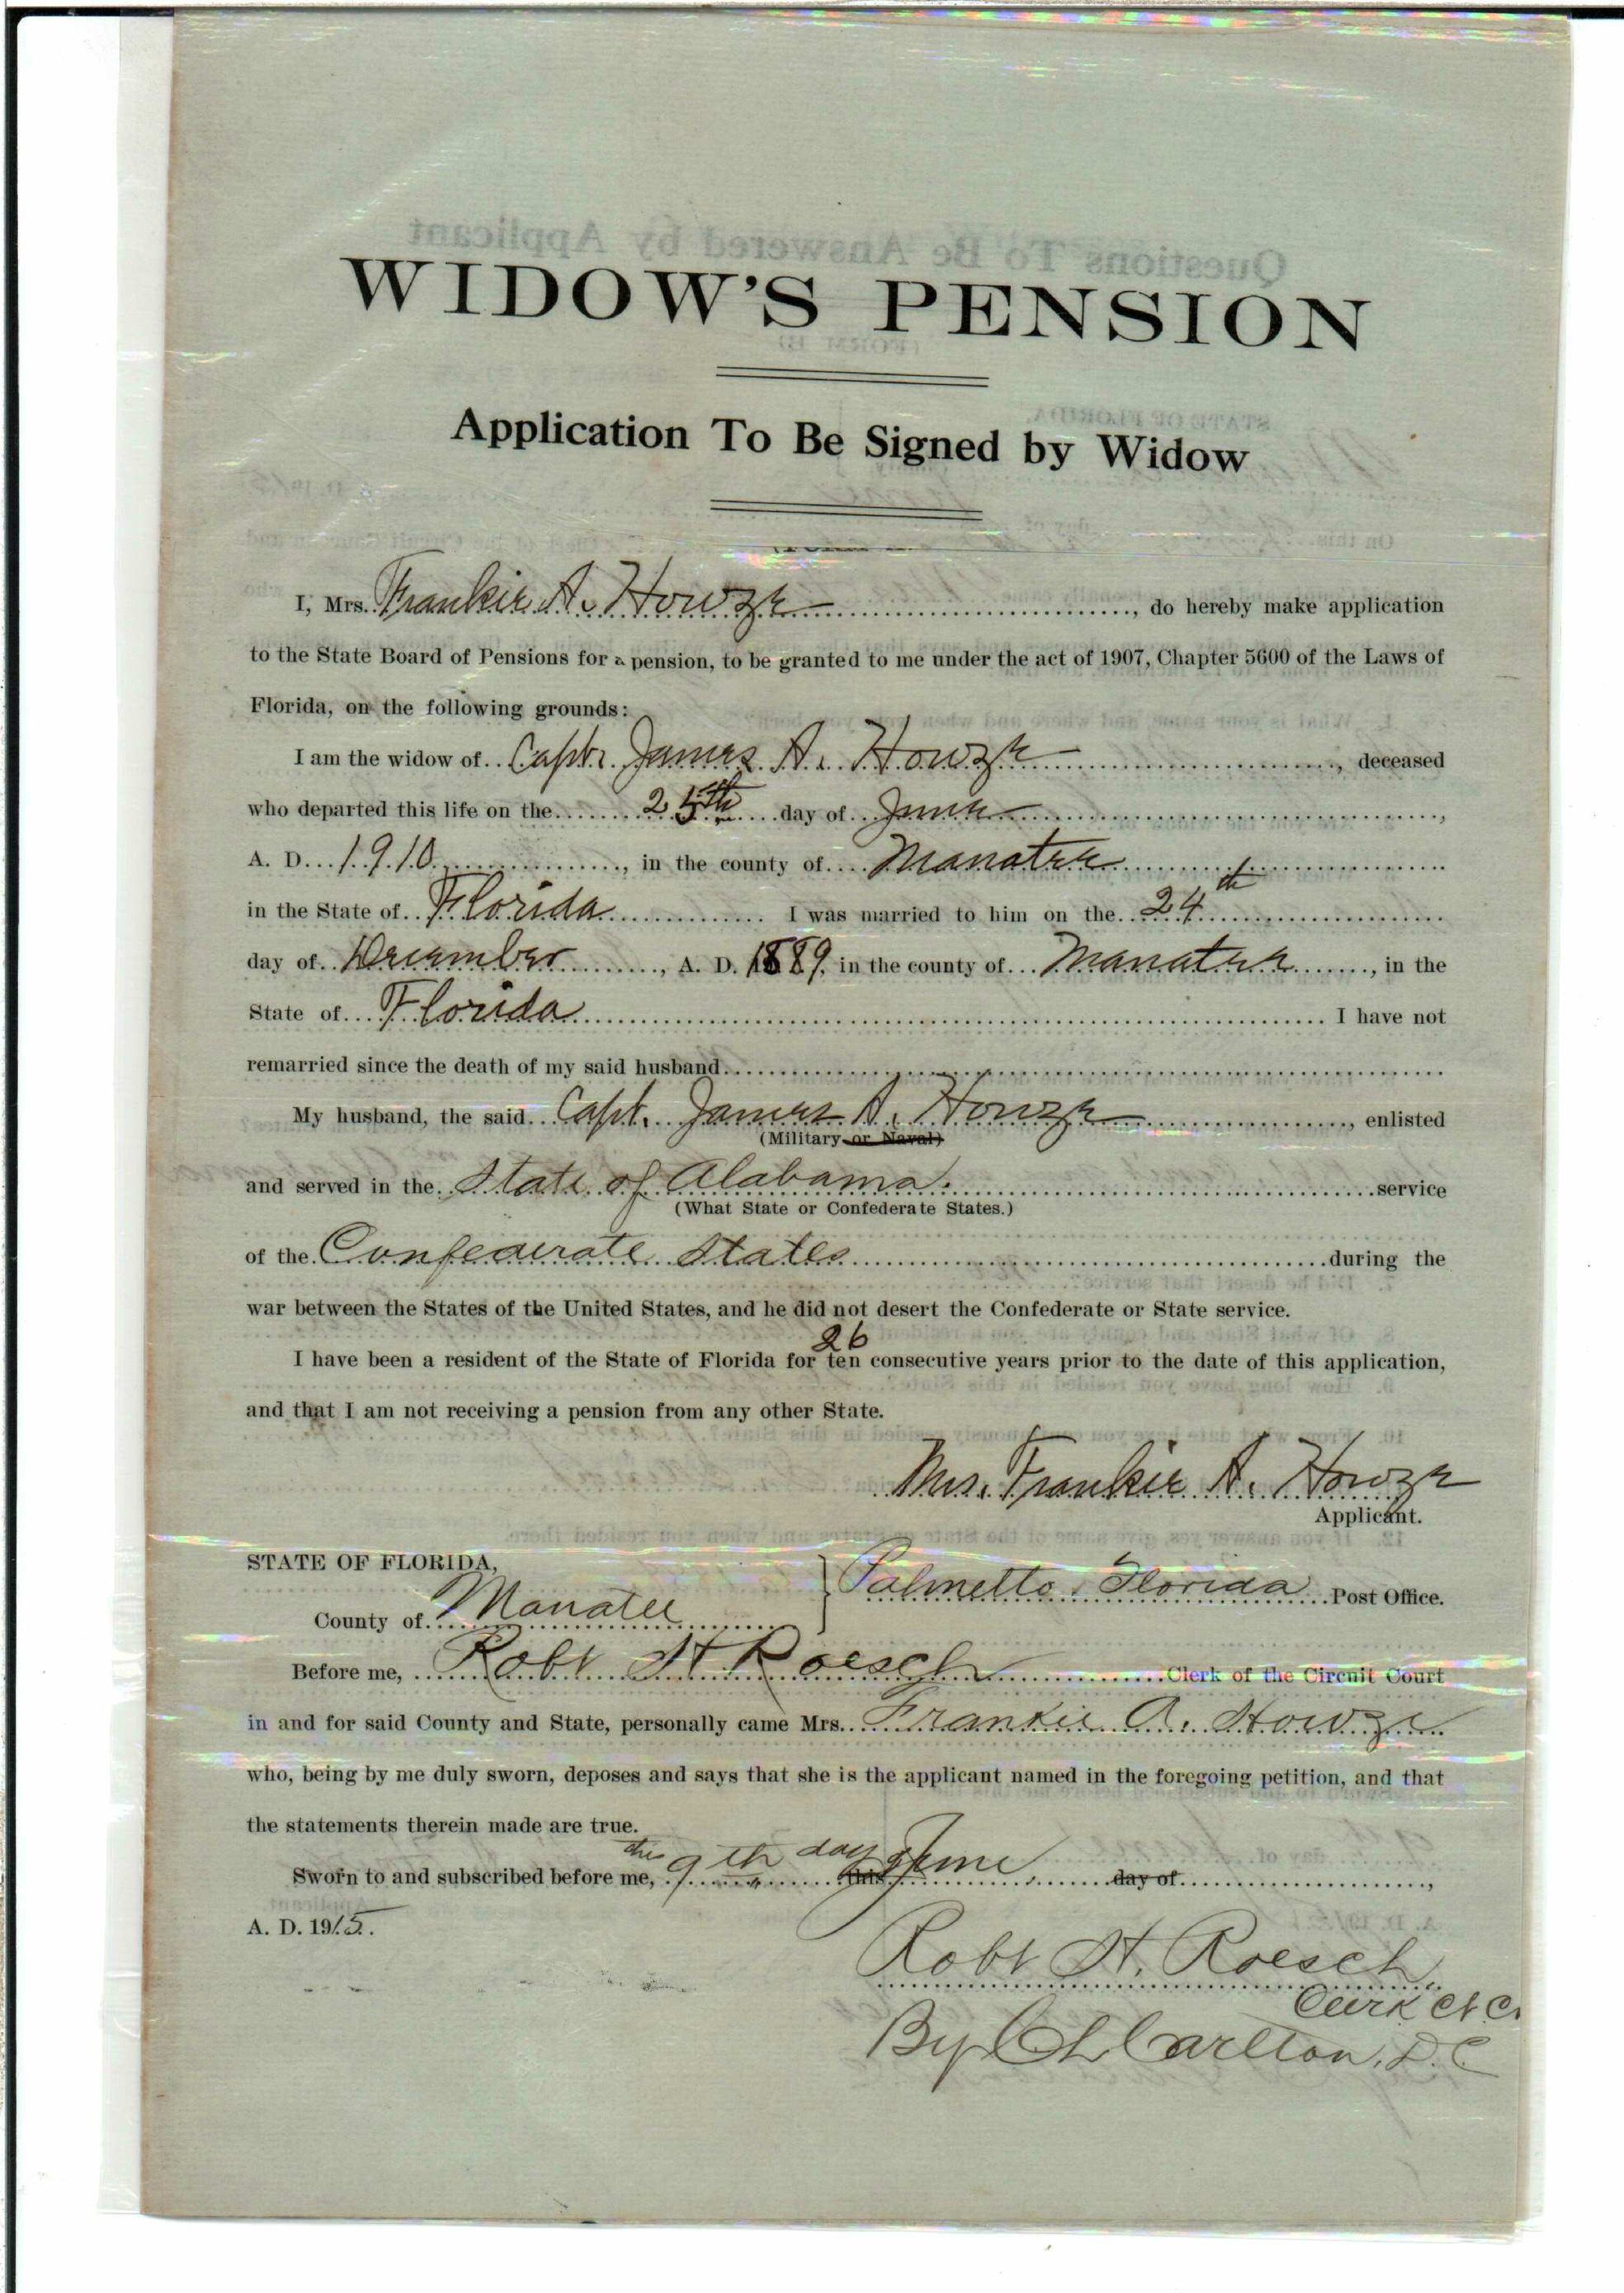 WIDOW'S PENSION
Application To Be Signed by Widow
I, Mrs. Frankie A. Howze, do hereby make application
to the State Board of Pensions for a pension, to be granted to me under the act of 1907, Chapter 5600 of the Laws of
Florida, on the following grounds:
I am the widow of Capt. James A. Howze, deceased
who departed this life on the 25th day of June,
A. D. 1910, in the county of Manatee
in the State of Florida I was married to him on the 24th
day of December, A. D. 1889, in the county of Manatee, in the
State of Florida I have not
remarried since the death of my said husband
My husband, the said Capt. James A. Howze, enlisted
(Military or Naval)
and served in the State of Alabama. service
(What State or Confederate States.)
of the Confederate States during the
war between the States of the United States, and he did not desert the Confederate or State service.
26
I have been a resident of the State of Florida for ten consecutive years prior to the date of this application,
and that I am not receiving a pension from any other State.
Mrs. Frankie A. Howze
Applicant.
STATE OF FLORIDA,
County of Manatee
Palmetto, Florida Post Office.
Before me, Robt H Roesch Clerk of the Circuit Court
in and for said County and State, personally came Mrs. Frankie A. Howze
who, being by me duly sworn, deposes and says that she is the applicant named in the foregoing petition, and that
the statements therein made are true.
Sworn to and subscribed before me, this 9th day of June this day of,
A. D. 1915.
Robt H. Roesch,
Clerk Ct. Ct.
By Carlton, D. C.